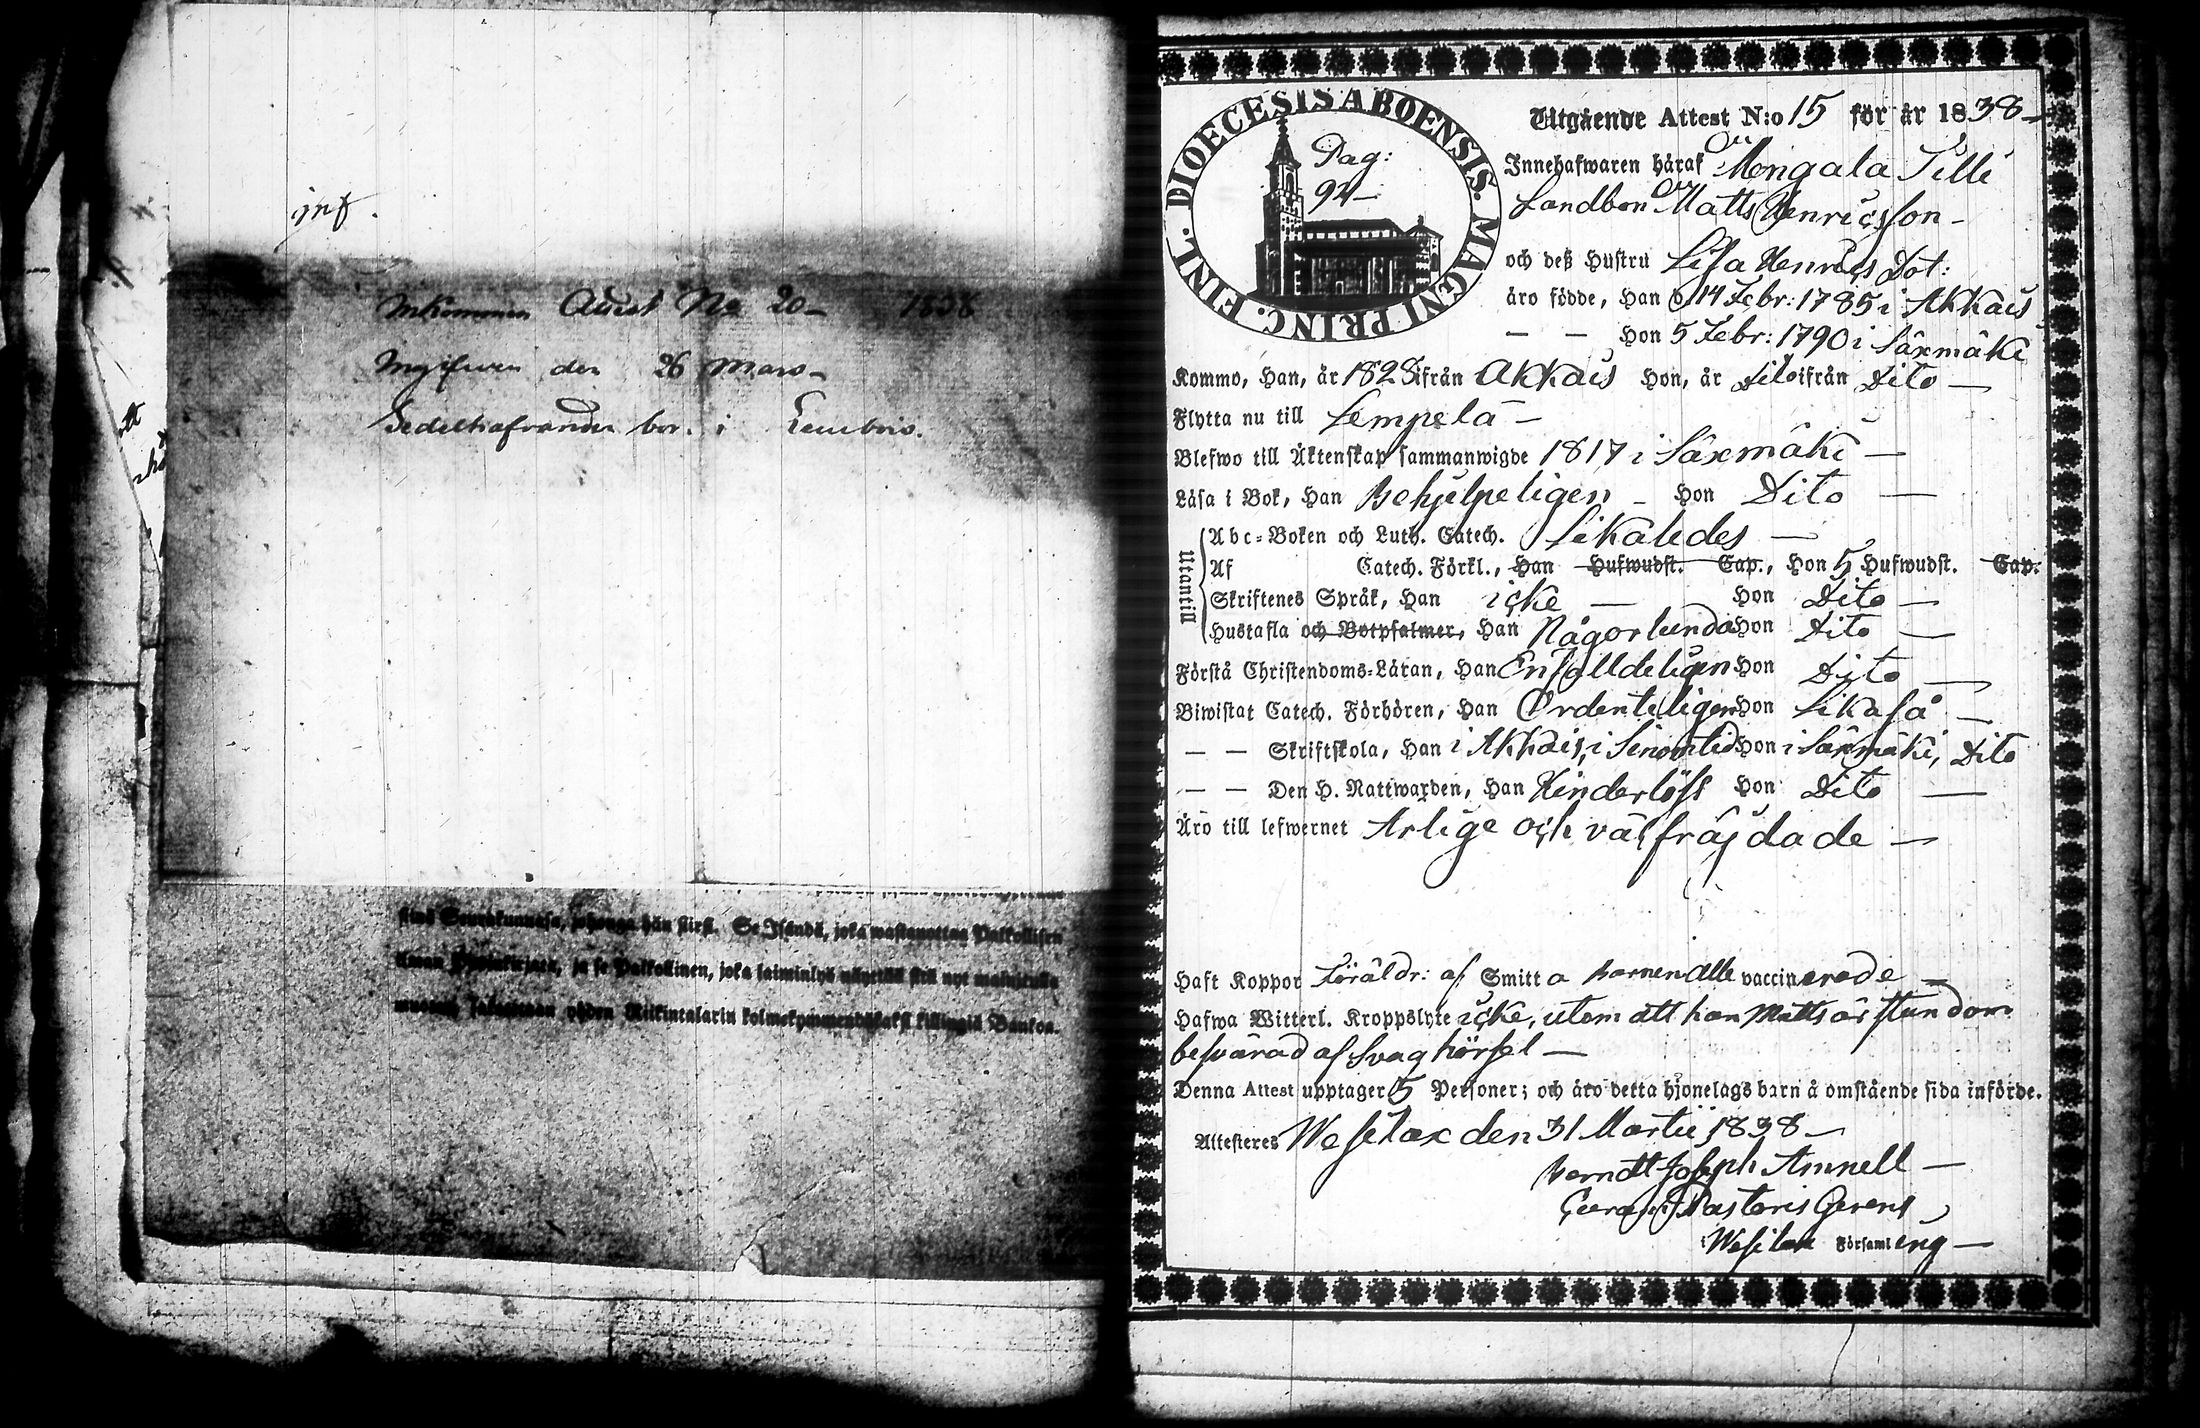 inf.
Inkommen Attest No 20 – 1838
Ingifven den 26 Mars –
Sedelhafvanden bor i
stinä Seurakunnasa, johonga hän siirsi. Se Isändä, joka wastanottaa Palkollisen
ilman Papinkirjata, ja se Palkollinen, joka laiminlyö näyttää sitä nyt mainitulla
muotoa, yhden Riikintalarin kolmekymmendäkaksi killingiä Bankoa.
DIOECESIS ABOENSIS. MAGNI PRINC. FINL.
Pag:
92 –
Utgående Attest N:o 15 för år 1838 –
Innehafwaren häraf Mongala Tilli
Landbon Matts Henricsson –
och deß Hustru Lisa Henrics Dot:
äro födde, Han d. 14 Febr: 1785 i Akkais
— — Hon 5 Febr: 1790 i Säxmäki
Kommo, Han, år 1828 ifrån Akkais Hon, år Dito ifrån Dito —
Flytta nu till Lempelä –
Blefwo till Äktenskap sammanwigde 1817 i Säxmäki —
Läsa i Bok, Han Behjelpeligen – Hon Dito —
Utantill
Abc-Boken och Luth. Catech. Likaledes —
Af Catech. Förkl., Han Hufwudst. Cap., Hon 5 Hufwudst. Cap.
Skriftenes Språk, Han icke — Hon Dito —
Hustafla och Botpsalmer, Han Någorlunda Hon Dito —
Förstå Christendoms-Läran, Han Enfalldeligen Hon Dito —
Biwistat Catech. Förhören, Han Ordenteligen Hon Likaså —
— — Skriftskola, Han i Akkais, i Sinom tid Hon i Säxmäki, Dito
— — Den H. Nattwarden, Han Hinderlöst Hon Dito —
Äro till lefwernet Ärlige och välfräjdade —
Haft Koppor Föräldr: af Smitta barnen alle vaccinerade —
Hafwa Witterl. Kroppslyte icke, utom att han Matts är stundom
besvärad af Svag hörsel —
Denna Attest upptager 5 Personer; och äro detta hjonelags barn å omstående sida införde.
Attesteres Wesilax den 31 Martii 1838 —
Berndt Joseph Amnell —
Curam Pastoris Gerens
i Wesilax Församling —